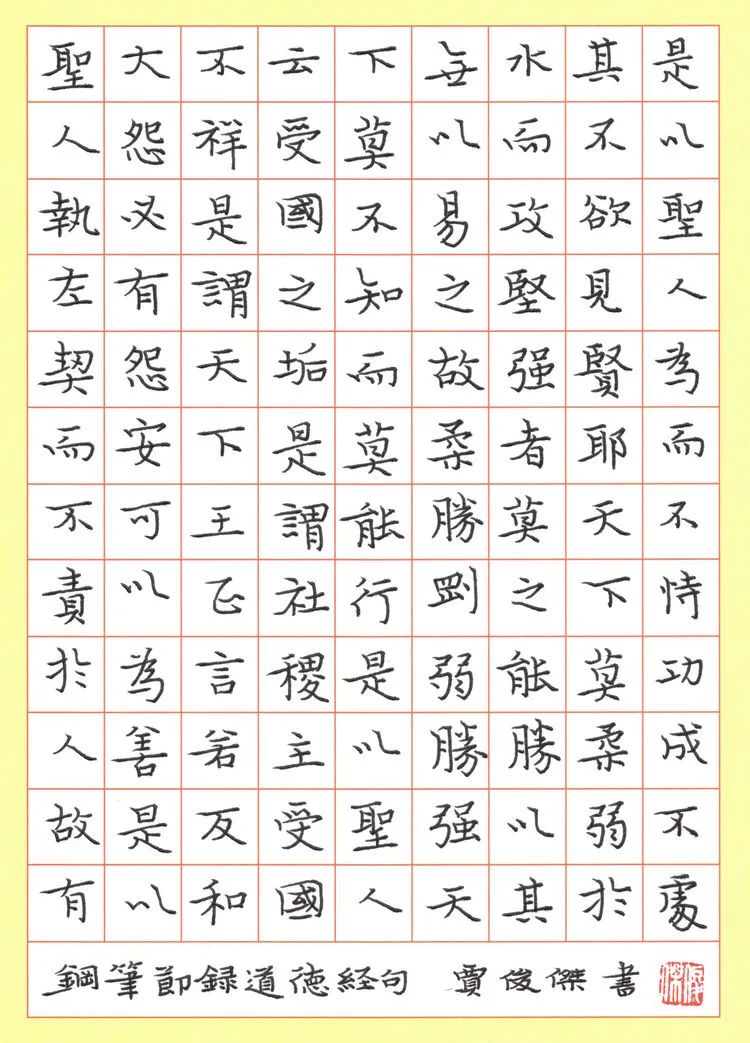 是以聖人為而不恃功成不處
其不欲見賢耶天下莫柔弱於
水而攻堅强者莫之能勝以其
無以易之故柔勝剛弱勝强天
下莫不知而莫能行是以聖人
云受國之垢是謂社稷主受國
不祥是謂天下王正言若反和
大怨必有怨安可以為善是以
聖人執左契而不責於人故有
鋼筆節録道德経句 賈俊傑書
俊傑